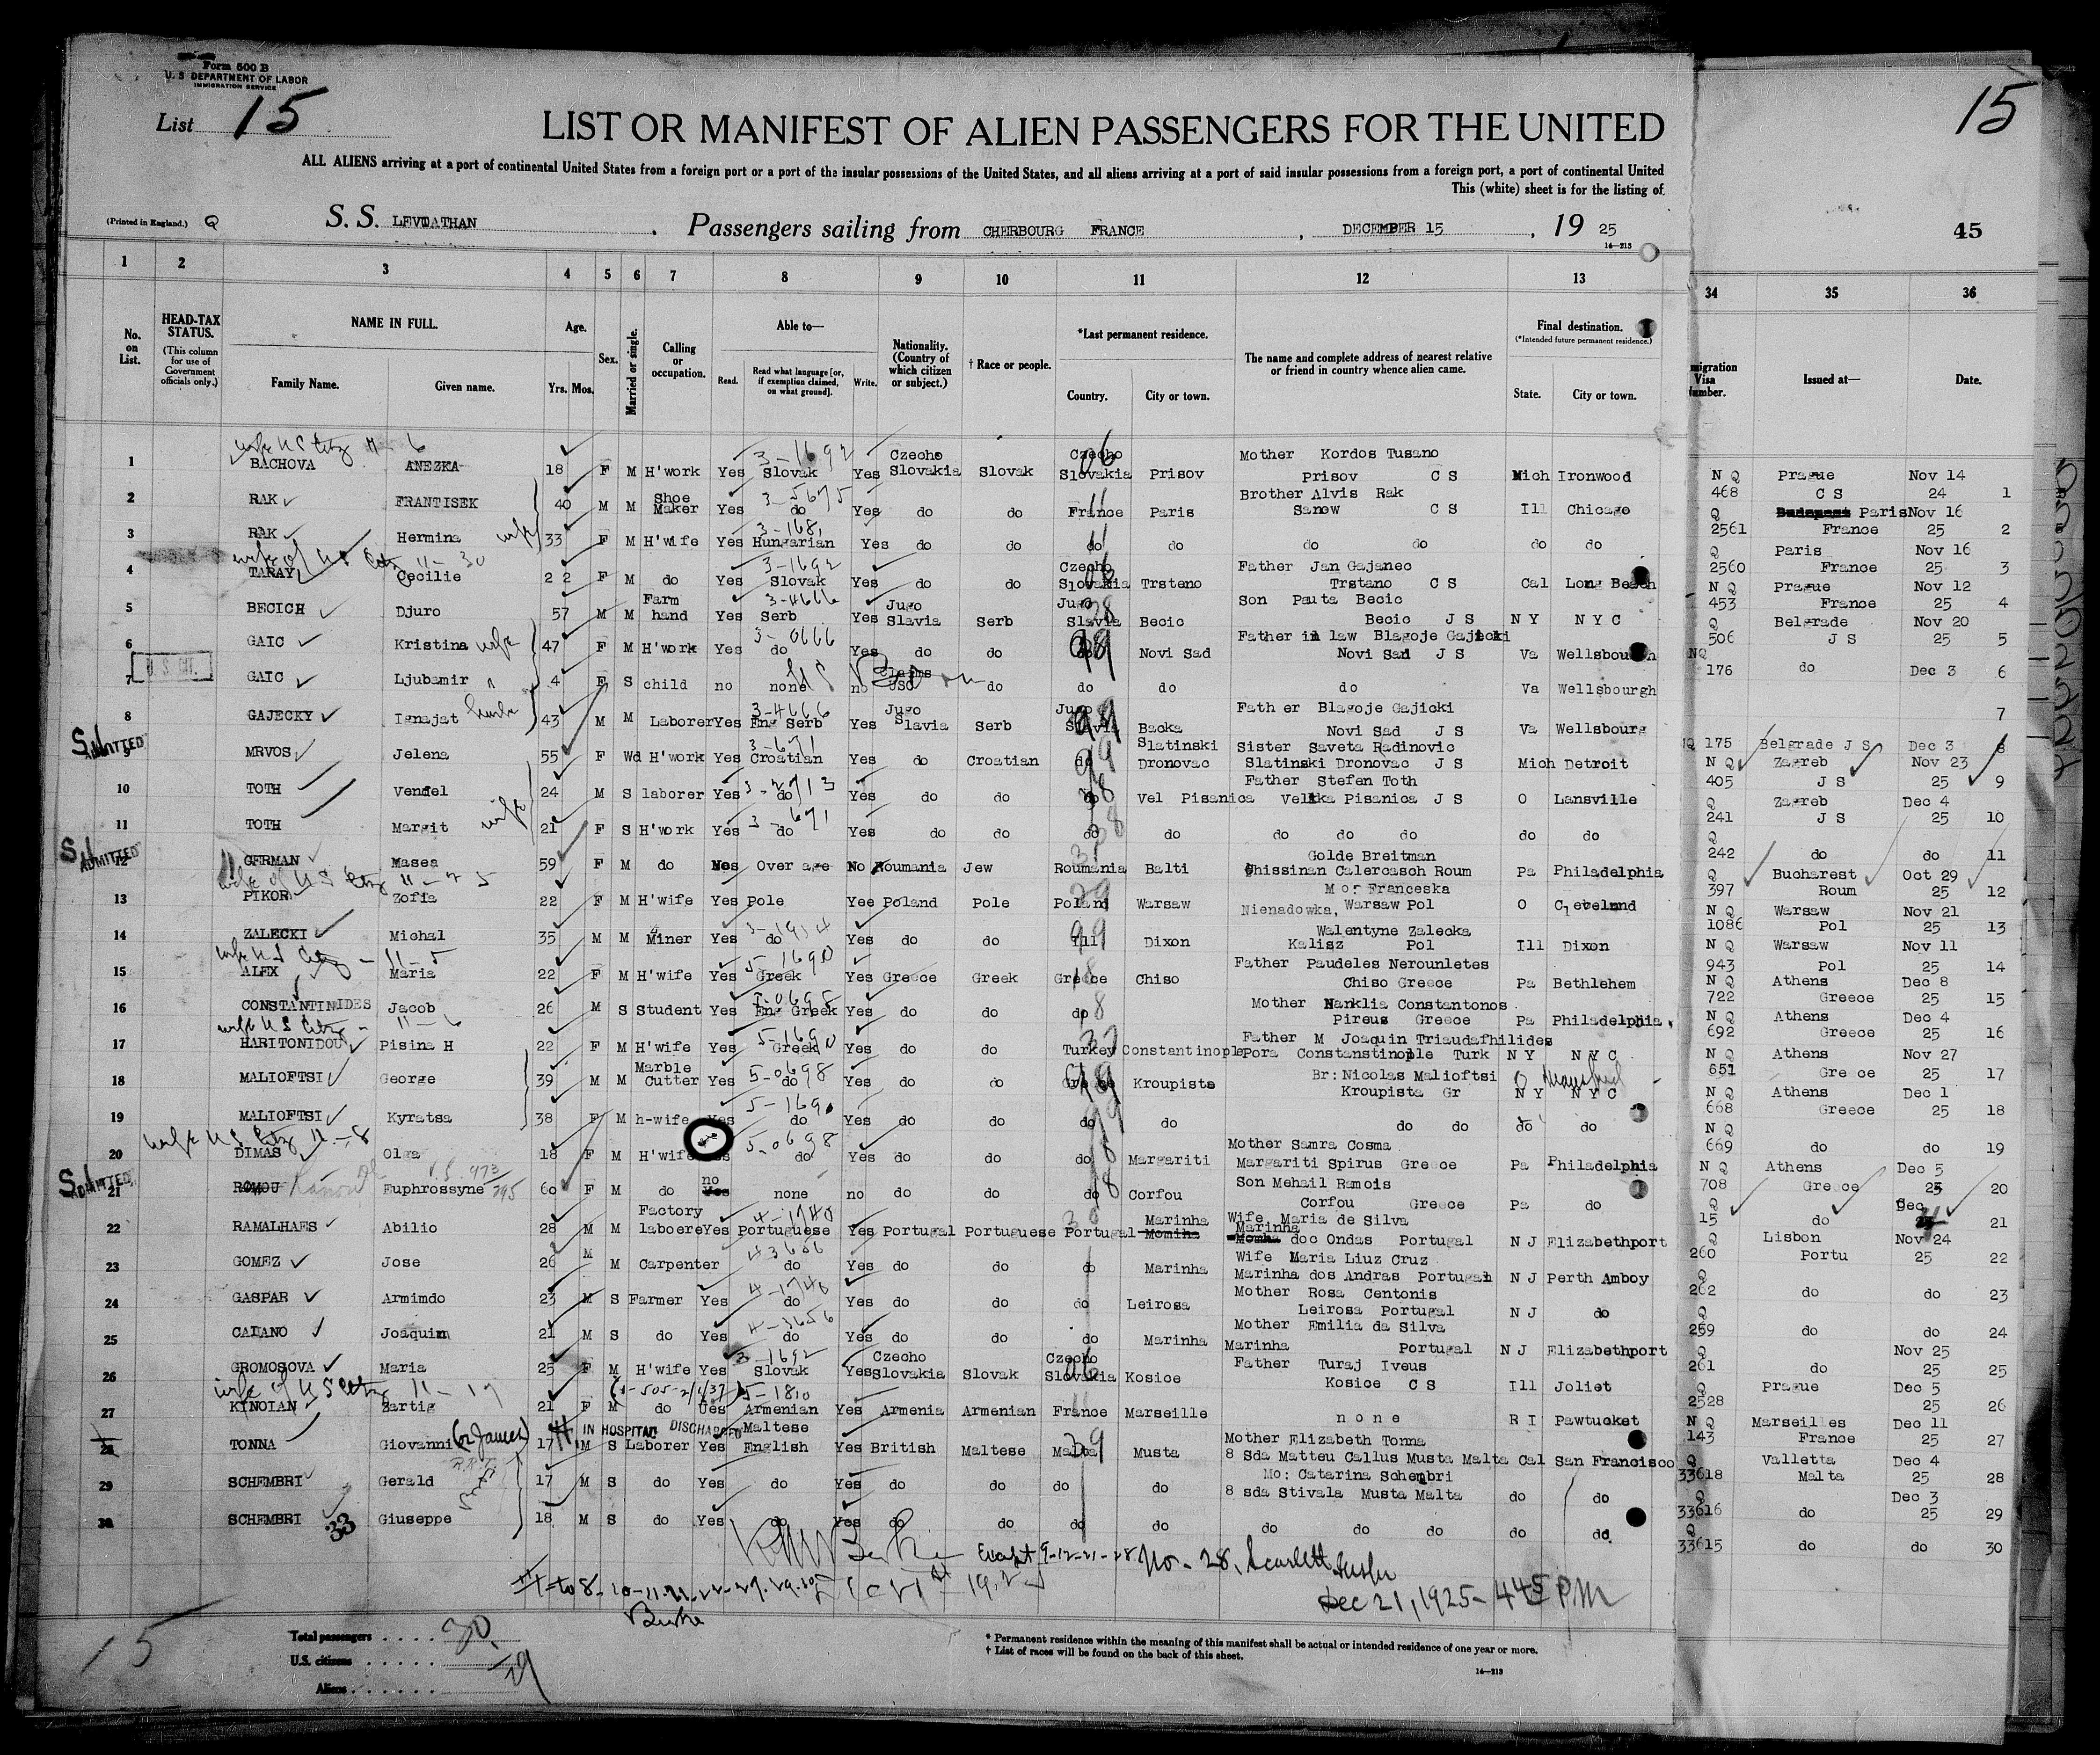 Form 500 B
U. S DEPARTMENT OF LABOR
IMMIGRATION SERVICE
List 15
15
LIST OR MANIFEST OF ALIEN PASSENGERS FOR THE UNITED
ALL ALIENS arriving at a port of continental United States from a foreign port or a port of the insular possessions of the United States, and all aliens arriving at a port of said insular possessions from a foreign port, a port of continental United
This (white) sheet is for the listing of
(Printed in England.) Q S. S. LEVIATHAN . Passengers sailing from CHERBOURG FRANCE , DECEMBER 15 , 19 25
45
16—213
1 2 3 4 5 6 7 8 9 10 11 12 13 34 35 36
No. on List.
HEAD-TAX STATUS.
(This column for use of Government officials only.)
NAME IN FULL.
Family Name. Given name.
Age.
Yrs. Mos.
Sex.
Married or single.
Calling or occupation.
Able to—
Read. Read what language [or, if exemption claimed, on what ground]. Write.
Nationality. (Country of which citizen or subject.)
† Race or people.
*Last permanent residence.
Country. City or town.
The name and complete address of nearest relative or friend in country whence alien came.
Final destination.
(*Intended future permanent residence.)
State. City or town.
migration Visa Number.
Issued at—
Date.
wife US Citz 11-6
1 BACHOVA ANEZKA 18 F M H'work Yes 3-1692 Slovak Yes Czecho Slovakia Slovak Czecho Slovakia Prisov Mother Kordos Tusano Prisov C S Mich Ironwood N Q 468 Prague C S Nov 14 24 1
2 RAK FRANTISEK 40 M M Shoe Maker Yes 3-5675 do Yes do do France Paris Brother Alvis Rak Sanow C S Ill Chicago Q 2561 Paris France Nov 16 25 2
3 RAK Hermina wife 33 F M H'wife Yes Hungarian Yes do do do do do do do do Q 2560 Paris France Nov 16 25 3
wife of US Citz 11-30
4 TARAY Cecilie 22 F M do Yes 3-1692 Slovak Yes do do Czecho Slovakia Trsteno Father Jan Gajanec Trstano C S Cal Long Beach N Q 453 Prague France Nov 12 25 4
5 BECICH Djuro 57 M M Farm hand Yes 3-4666 Serb Yes Jugo Slavia Serb Jugo Slavia Becic Son Pauta Becic Becic J S N Y N Y C Q 506 Belgrade J S Nov 20 25 5
6 GAIC Kristina wife 47 F M H'work Yes 3-0666 do Yes do do Novi Sad Father in law Blagoje Gajicki Novi Sad J S Va Wellsbourgh NQ 176 do Dec 3 6
U. S. CIT.
7 GAIC Ljubamir 4 S child no none US no USC do do do do Va Wellsbourgh 7
8 GAJECKY Ignajat husb 43 M M Laborer Yes 3-4666 Eng Serb Yes Jugo Slavia Serb Jugo Slavia Backa Father Blagoje Gajicki Novi Sad J S Va Wellsbourg NQ 175 Belgrade J S Dec 3 8
ADMITTED
9 MRVOS Jelena 55 F Wd H'work Yes 3-671 Croatian Yes do Croatian do Slatinski Dronovac Sister Saveta Radinovic Slatinski Dronovac J S Mich Detroit N Q 405 Zagreb J S Nov 23 25 9
10 TOTH Vendel 24 M S laborer Yes do Yes do do do Vel Pisanica Father Stefen Toth Velika Pisanica J S O Lansville Q 241 Zagreb J S Dec 4 25 10
11 TOTH Margit wife 21 F S H'work Yes 3-671 do Yes do do do do do do do do do Q 242 do do 11
ADMITTED
12 GERMAN Masea 59 F M do Over age No Roumania Jew Roumania Balti Golde Breitman Chissinan Calercasch Roum Pa Philadelphia Q 397 Bucharest Roum Oct 29 25 12
wife of US Citz 11-25
13 PIKOR Zofia 22 F M H'wife Yes Pole Yee Poland Pole Poland Warsaw M or Franceska Nienadowka, Warsaw Pol O Cleveland N Q 1086 Warsaw Pol Nov 21 25 13
14 ZALECKI Michal 35 M M Miner Yes 3-1914 do Yes do do Ill Dixon Walentyne Zalecka Kalisz Pol Ill Dixon N Q 943 Warsaw Pol Nov 11 25 14
wife US Citz - 11-5
15 ALEX Maria 22 F M H'wife Yes 5-1690 Greek Yes Greece Greek Greece Chiso Father Paudeles Nerounletes Chiso Greece Pa Bethlehem N Q 722 Athens Greece Dec 8 25 15
16 CONSTANTINIDES Jacob 26 M S Student Yes Eng Greek Yes do do do Mother Nanklia Constantonos Pireus Greece Pa Philadelphia N Q 692 Athens Greece Dec 4 25 16
wife US Citz - 11-6
17 HARITONIDOU Pisina H 22 F M H'wife Yes 5-1690 Greek Yes do do Turkey Constantinople Father M Joaquin Triaudafhilides Pora Constanstinople Turk N Y N Y C N Q 651 Athens Greece Nov 27 25 17
18 MALIOFTSI George 39 M M Marble Cutter Yes 5-0698 do Yes do do Greece Kroupista Br: Nicolas Malioftsi Kroupista Gr N Y N Y C N Q 668 Athens Greece Dec 1 25 18
19 MALIOFTSI Kyratsa 38 F M h-wife Yes 5-1690 do Yes do do do do do do do do N Q 669 do do 19
wife US Citz 11-8
20 DIMAS Olga 18 F M H'wife 5-0698 do Yes do do do Margariti Mother Samra Cosma Margariti Spirus Greece Pa Philadelphia N Q 708 Athens Greece Dec 5 25 20
ADMITTED
21 ROMOU Euphrossyne 60 F M do no none no do do do Corfou Son Mehail Ramois Corfou Greece Pa do Q 15 do Dec 21
22 RAMALHAES Abilio 28 M M Factory laborer Yes 4-1740 Portuguese Yes Portugal Portuguese Portugal Marinha Wife Maria de Silva Marinha doc Ondas Portugal N J Elizabethport Q 260 Lisbon Portu Nov 24 25 22
23 GOMEZ Jose 26 M M Carpenter 43656 do Yes do do do Marinha Wife Maria Liuz Cruz Marinha dos Andras Portugal N J Perth Amboy Q 262 do do 23
24 GASPAR Armimdo 23 M S Farmer Yes 4-1740 do Yes do do do Leirosa Mother Rosa Centonis Leirosa Portugal N J do Q 259 do do 24
25 CAIANO Joaquim 21 M S do Yes 4-3656 do Yes do do do Marinha Mother Emilia da Silva Marinha Portugal N J Elizabethport Q 261 do Nov 25 25 25
26 GROMOSOVA Maria 25 F M H'wife Yes 3-1692 Slovak Yes Czecho Slovakia Slovak Czecho Slovakia Kosice Father Turaj Iveus Kosice C S Ill Joliet Q 2528 Prague Dec 5 25 26
wife of US Citz 11-19
27 KYNOIAN Zartig 21 F M do Ues 5-1810 Armenian Yes Armenia Armenian France Marseille none R I Pawtucket N Q 143 Marseilles France Dec 11 25 27
IN HOSPITAL DISCHARGED
28 TONNA Giovanni (or James) 17 M S Laborer Yes Maltese English Yes British Maltese Malta Musta Mother Elizabeth Tonna 8 Sda Matteu Callus Musta Malta Cal San Francisco Q 33618 Valletta Malta Dec 4 25 28
29 SCHEMBRI Gerald 17 M S do Yes do Yes do do do do Mo: Catarina Schembri 8 sda Stivala Musta Malta do do Q 33616 do Dec 3 25 29
30 SCHEMBRI Giuseppe 18 M S do Yes do Yes do do do do do do do do do Q 33615 do do 30
33
Except 9-12-21-28 No. 28,
Dec 21, 1925 - 445 PM
Burke
15
Total passengers . . . . 30
U.S. citizens . . . . . 1
Aliens . . . . . . 29
* Permanent residence within the meaning of this manifest shall be actual or intended residence of one year or more.
† List of races will be found on the back of this sheet.
16—213